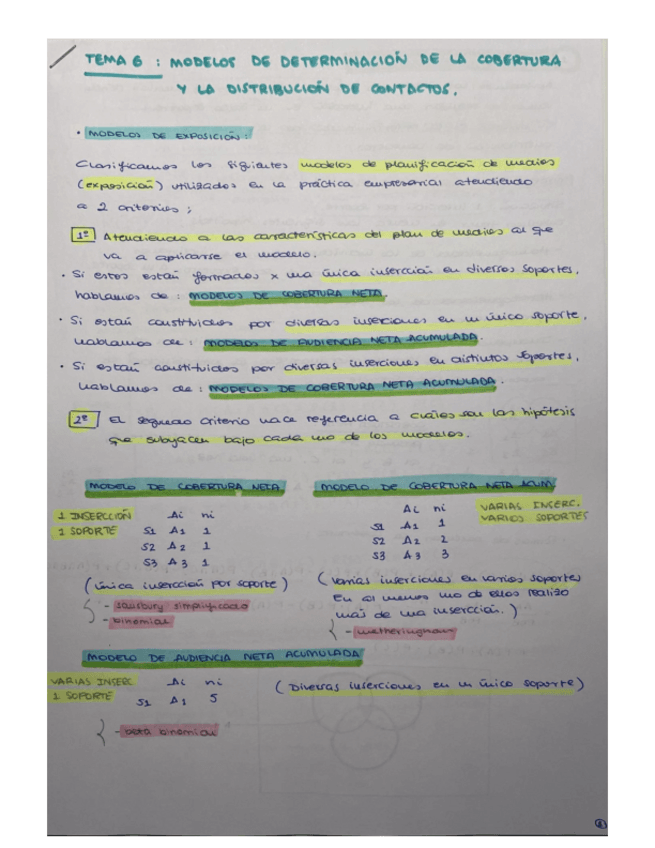 TEMA 6 : MODELOS DE DETERMINACIÓN DE LA COBERTURA
Y LA DISTRIBUCIÓN DE CONTACTOS.
• MODELOS DE EXPOSICIÓN:
Clasificamos los siguientes modelos de planificación de medios
(exposición) utilizados en la práctica empresarial atendiendo
a 2 criterios;
1º Atendiendo a las características del plan de medios al que
va a aplicarse el modelo.
• Si estos están formados x una única inserción en diversos soportes,
hablamos de: MODELOS DE COBERTURA NETA.
• Si están constituidos por diversas inserciones en un único soporte,
hablamos de: MODELOS DE AUDIENCIA NETA ACUMULADA.
• Si están constituidos por diversas inserciones en distintos soportes,
hablamos de: MODELOS DE COBERTURA NETA ACUMULADA.
2º El segundo criterio hace referencia a cuáles son las hipótesis
que subyacen bajo cada uno de los modelos.
MODELO DE COBERTURA NETA
1 INSERCCIÓN Ai ni
1 SOPORTE S1 A1 1
S2 A2 1
S3 A3 1
(única inserción por soporte)
- sainsbury simplificado
- binomial
MODELO DE COBERTURA NETA ACUM
Ai ni VARIAS INSERC.
S1 A1 1 VARIOS SOPORTES
S2 A2 2
S3 A3 3
(varias inserciones en varios soportes
En al menos uno de ellos realizo
más de una inserción.)
- metheringham
MODELO DE AUDIENCIA NETA ACUMULADA
VARIAS INSERC. Ai ni (Diversas inserciones en un único soporte)
1 SOPORTE S1 A1 5
- beta binomial